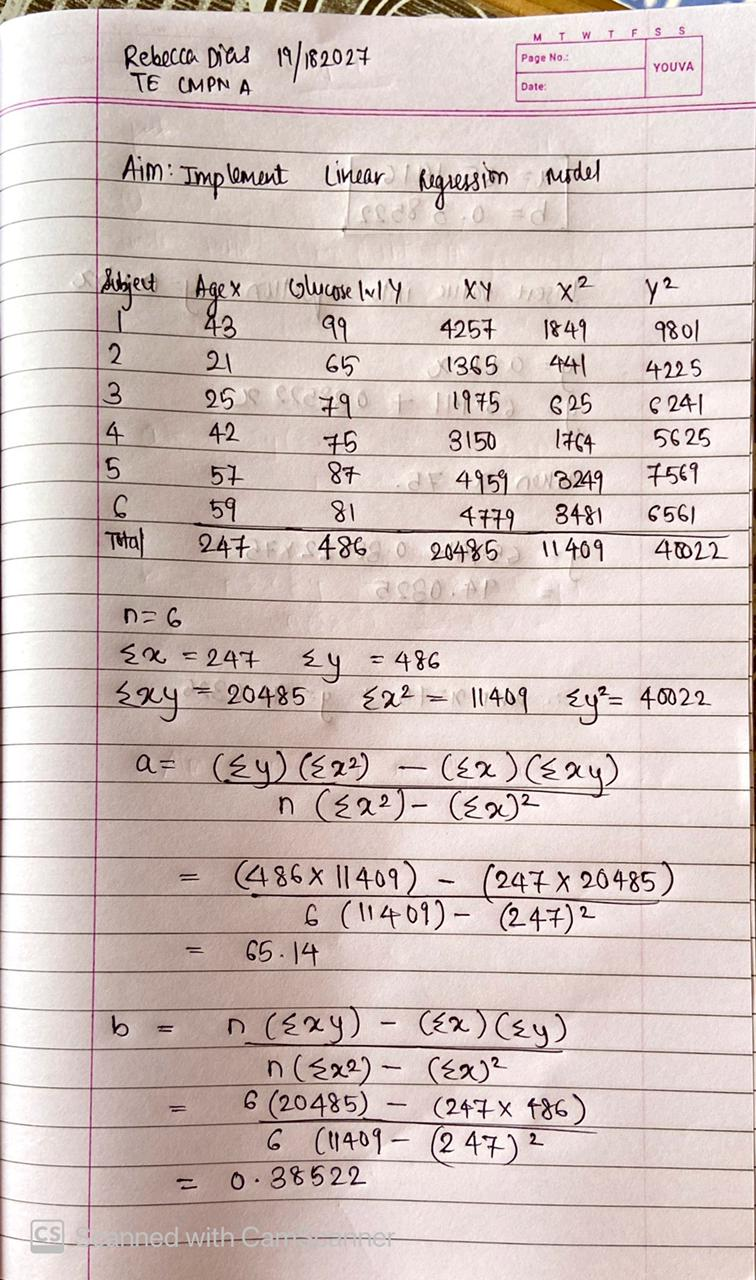 M T W T F S S
Rebecca Dias 19/182027
Page No.:
YOUVA
TE CMPN A
Date:
Aim: Implement Linear Regression Model
Subject Age x Glucose lvl Y XY X² Y²
1 43 99 4257 1849 9801
2 21 65 1365 441 4225
3 25 79 1975 625 6241
4 42 75 3150 1764 5625
5 57 87 4959 3249 7569
6 59 81 4779 3481 6561
Total 247 486 20485 11409 40022
n=6
Σx = 247 Σy = 486
Σxy = 20485 Σx² = 11409 Σy² = 40022
a = (Σy)(Σx²) - (Σx)(Σxy)
n (Σx²) - (Σx)²
= (486 x 11409) - (247 x 20485)
6 (11409) - (247)²
= 65.14
b = n (Σxy) - (Σx)(Σy)
n(Σx²) - (Σx)²
= 6 (20485) - (247 x 486)
6 (11409 - (247)²
= 0.38522
CS Scanned with CamScanner